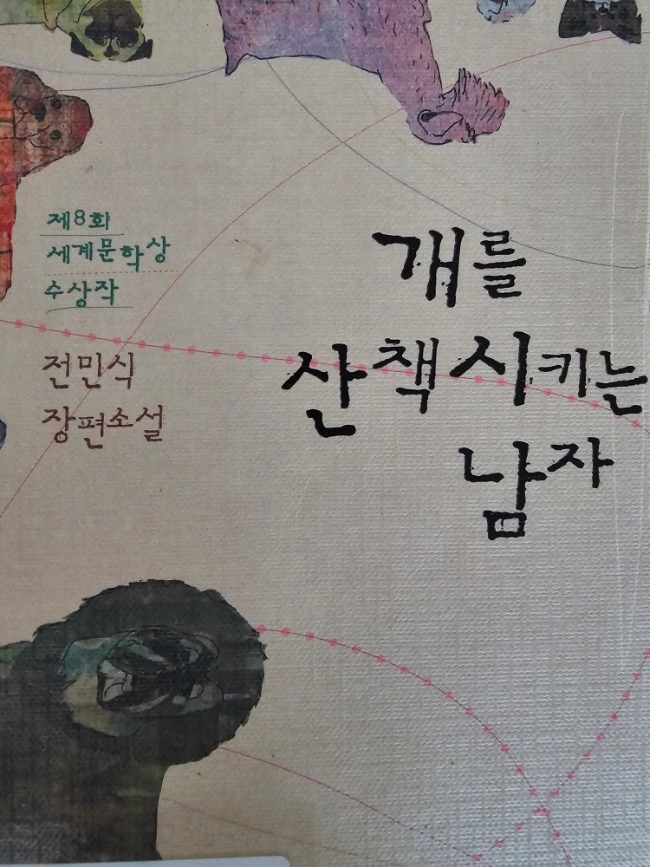 제8회
세계문학상
수상작
전민식
장편소설
개를
산책시키는
남자